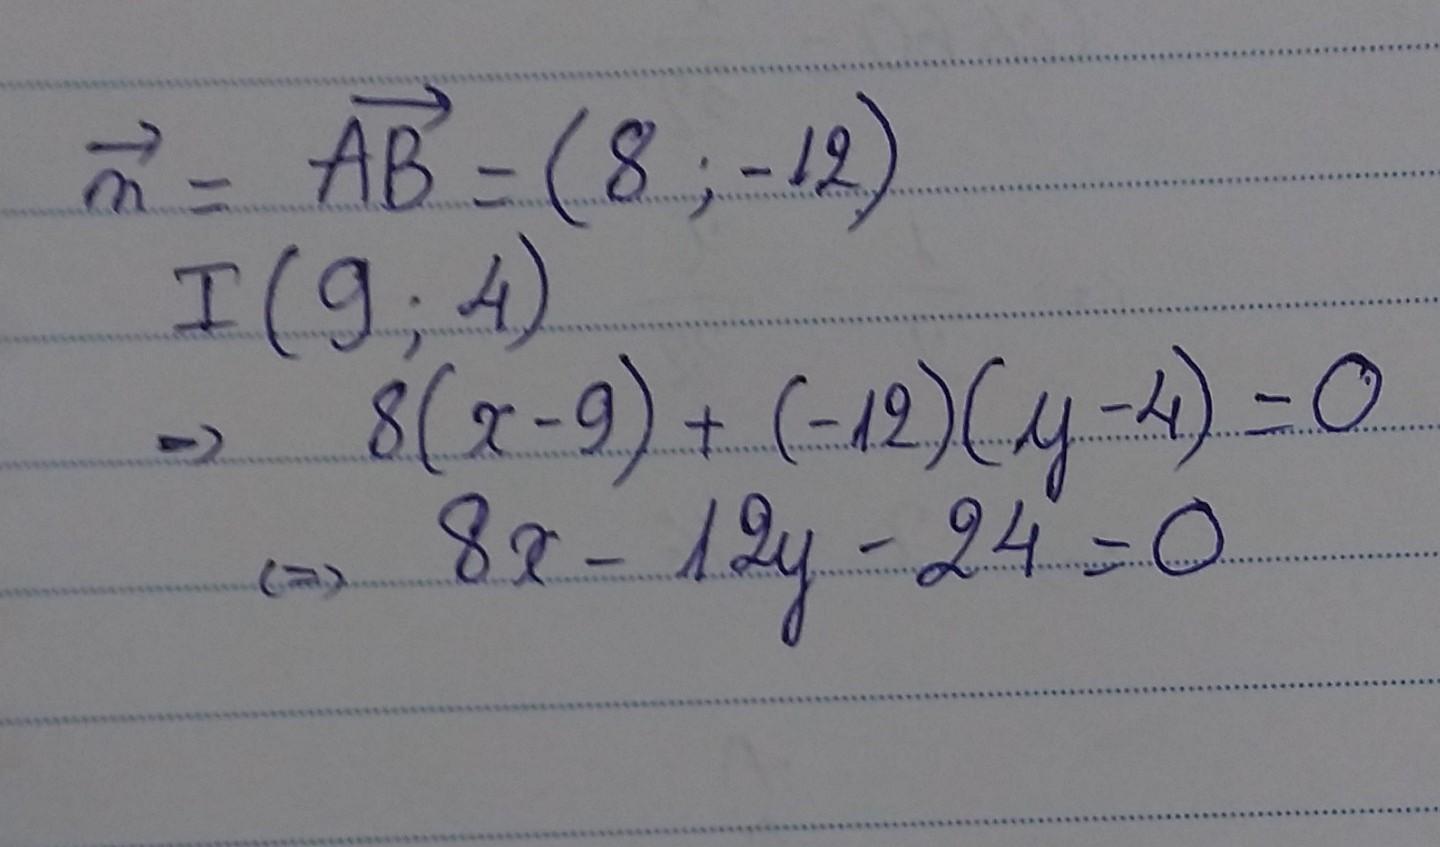 n⃗ = AB⃗ = (8 ; -12)
I (9 ; 4)
=> 8(x - 9) + (-12)(y - 4) = 0
<=> 8x - 12y - 24 = 0